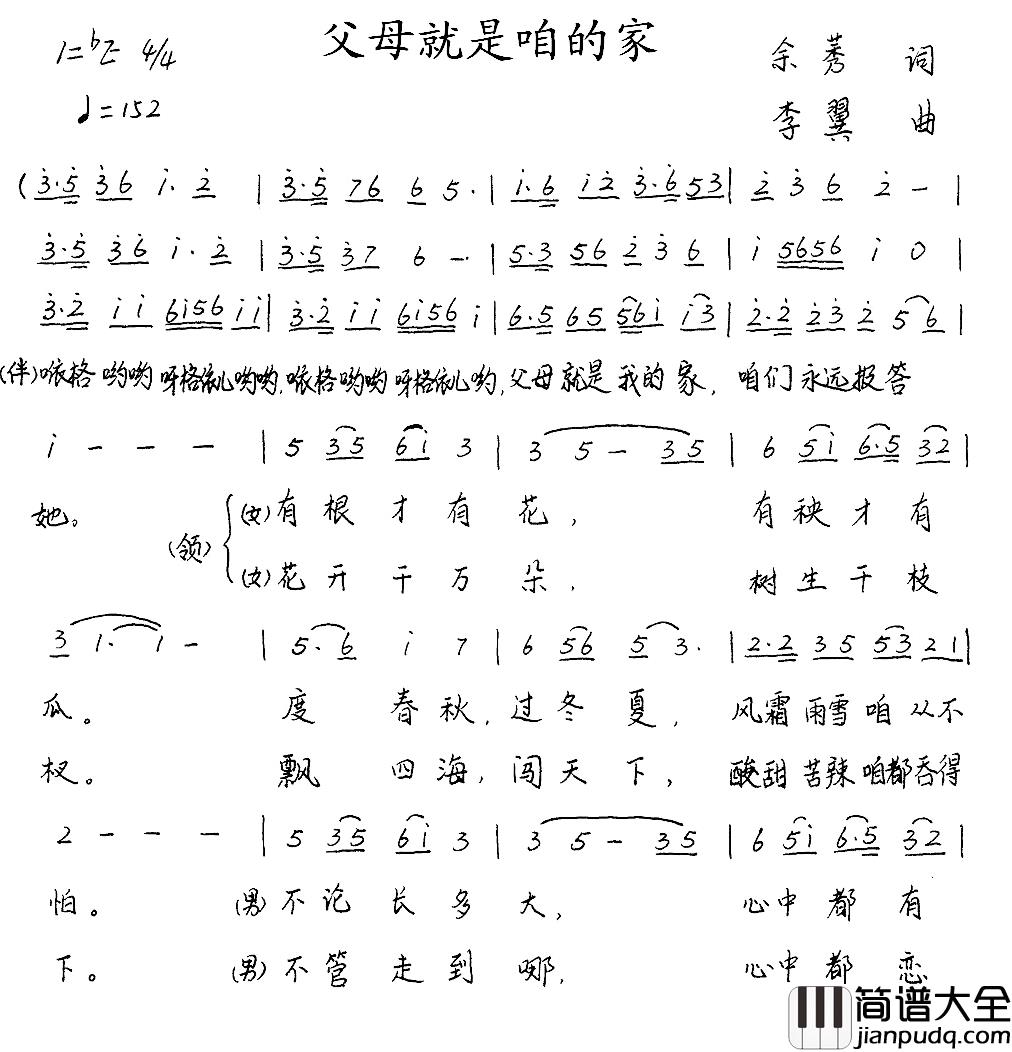 父母就是咱的家
1=♭E 4/4
余莠 词
♩=152
李翼 曲
(3̇·5̇ 3̇6 i· 2̇ | 3̇·5̇ 76 6 5· | i·6 i2̇ 3̇·6 53 | 2̇ 3̇ 6 2̇ - |
3̇·5̇ 3̇6 i· 2̇ | 3̇·5̇ 3̇7 6 - · | 5·3 56 2̇ 3̇ 6 | i 5656 i 0 |
3̇·2̇ i i 6i56 i i | 3̇·2̇ i i 6i56 i | 6·5 65 56i i3̇ | 2̇·2̇ 2̇3̇ 2̇ 5 6 |
(伴)咴格哟哟呀格依儿哟哟,咴格哟哟呀格依儿哟,父母就是我的家,咱们永远报答
i - - - | 5 35 6i 3 | 3 5 - 35 | 6 5i 6·5 32 |
她。 (领) (女)有根才有花, 有秧才有
(女)花开千万朵, 树生千枝
3 1· 1 - | 5· 6 i 7 | 6 56 5 3· | 2·2 35 53 21 |
瓜。 度春秋,过冬夏,风霜雨雪咱从不
杈。 飘四海,闯天下,酸甜苦辣咱都吞得
2 - - - | 5 35 6i 3 | 3 5 - 35 | 6 5i 6·5 32 |
怕。 (男)不论长多大, 心中都有
下。 (男)不管走到哪, 心中都恋
简谱大全
jianpudq.com